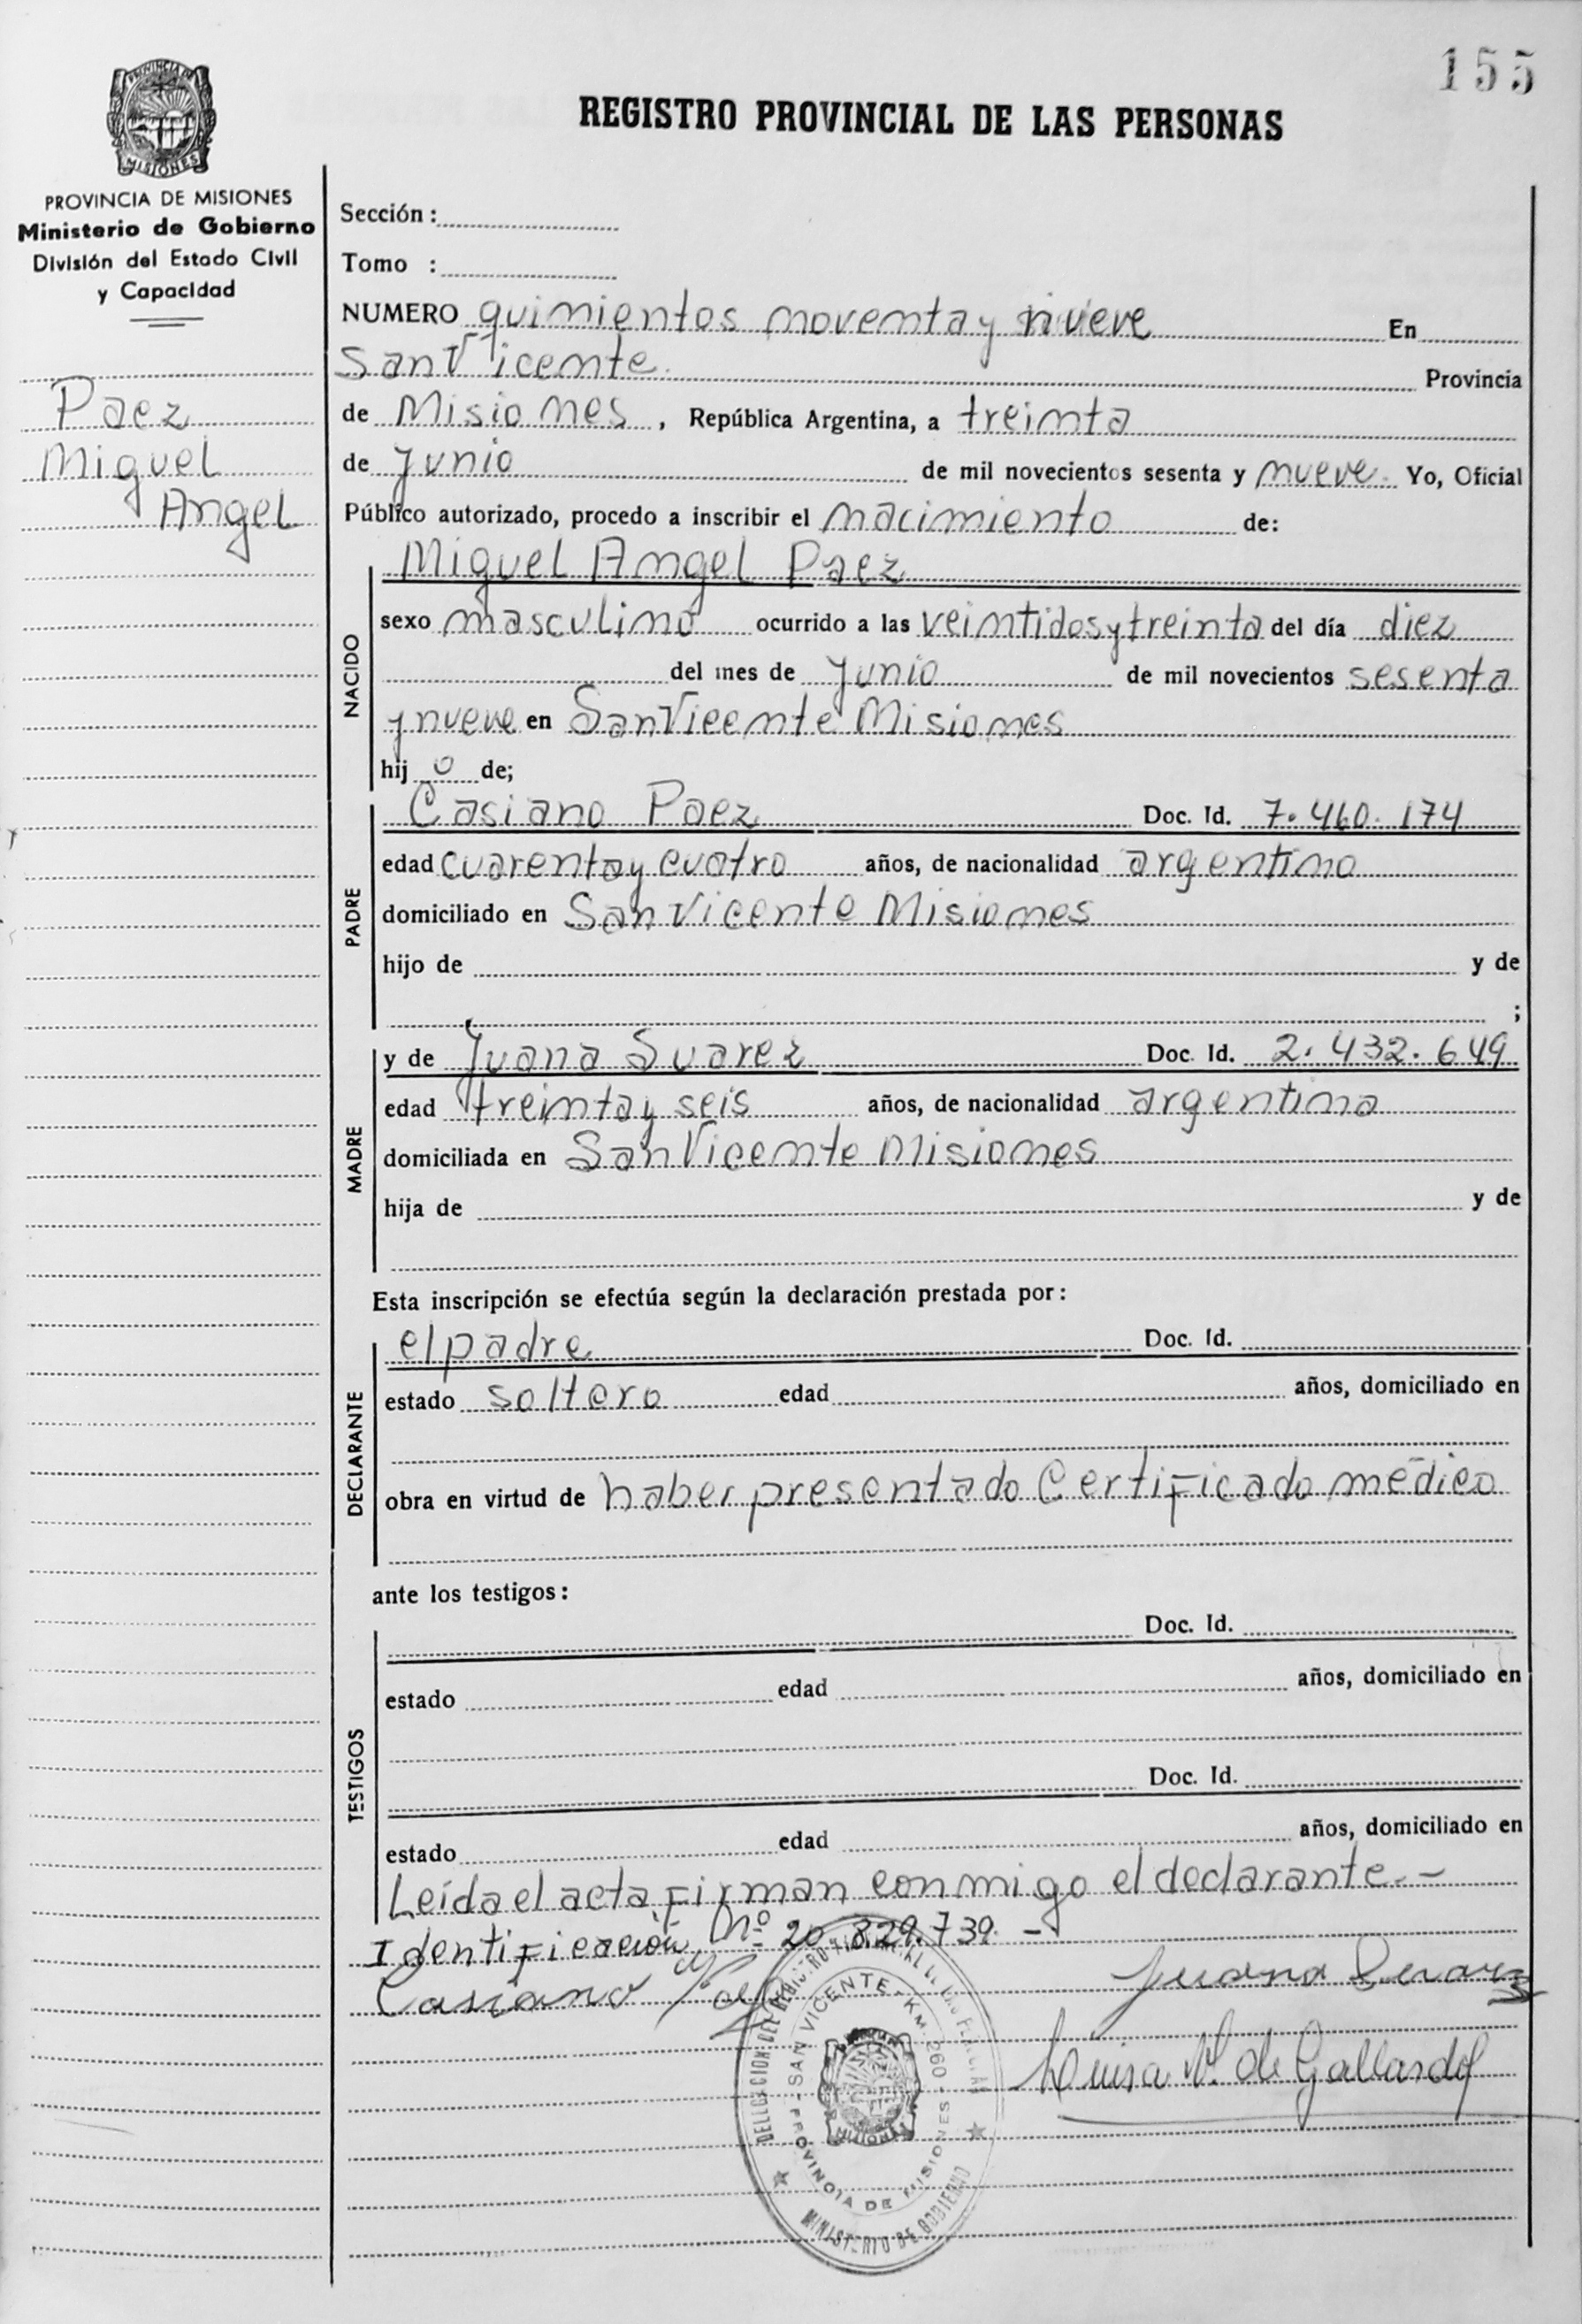 155
REGISTRO PROVINCIAL DE LAS PERSONAS
PROVINCIA DE MISIONES
PROVINCIA DE MISIONES
Ministerio de Gobierno
División del Estado Civil
y Capacidad
Paez
Miguel
Angel
Sección :
Tomo :
NUMERO quimientos noventa y nueve En
San Vicente. Provincia
de Misiones, República Argentina, a treinta
de Junio de mil novecientos sesenta y nueve. Yo, Oficial
Público autorizado, procedo a inscribir el nacimiento de:
NACIDO
Miguel Angel Paez
sexo masculino ocurrido a las veintidos y treinta del día diez
del mes de Junio de mil novecientos sesenta
y nueve en San Vicente Misiones
hij o de;
PADRE
Casiano Paez Doc. Id. 7.460.174
edad cuarenta y cuatro años, de nacionalidad argentina
domiciliado en San Vicente Misiones
hijo de y de
;
MADRE
y de Juana Suarez Doc. Id. 2.432.649
edad treinta y seis años, de nacionalidad argentina
domiciliada en San Vicente Misiones
hija de y de
Esta inscripción se efectúa según la declaración prestada por:
DECLARANTE
el padre Doc. Id.
estado soltero edad años, domiciliado en
obra en virtud de haber presentado Certificado médico
ante los testigos:
TESTIGOS
Doc. Id.
estado edad años, domiciliado en
Doc. Id.
estado edad años, domiciliado en
Leída el acta, firman conmigo el declarante.-
Identificación Nº 20.829.739.-
Casiano Juana Suarez
Luisa de Gallardo
SAN VICENTE - KM. 260 - PROVINCIA DE MISIONES
MINISTERIO DE GOBIERNO
MISIONES